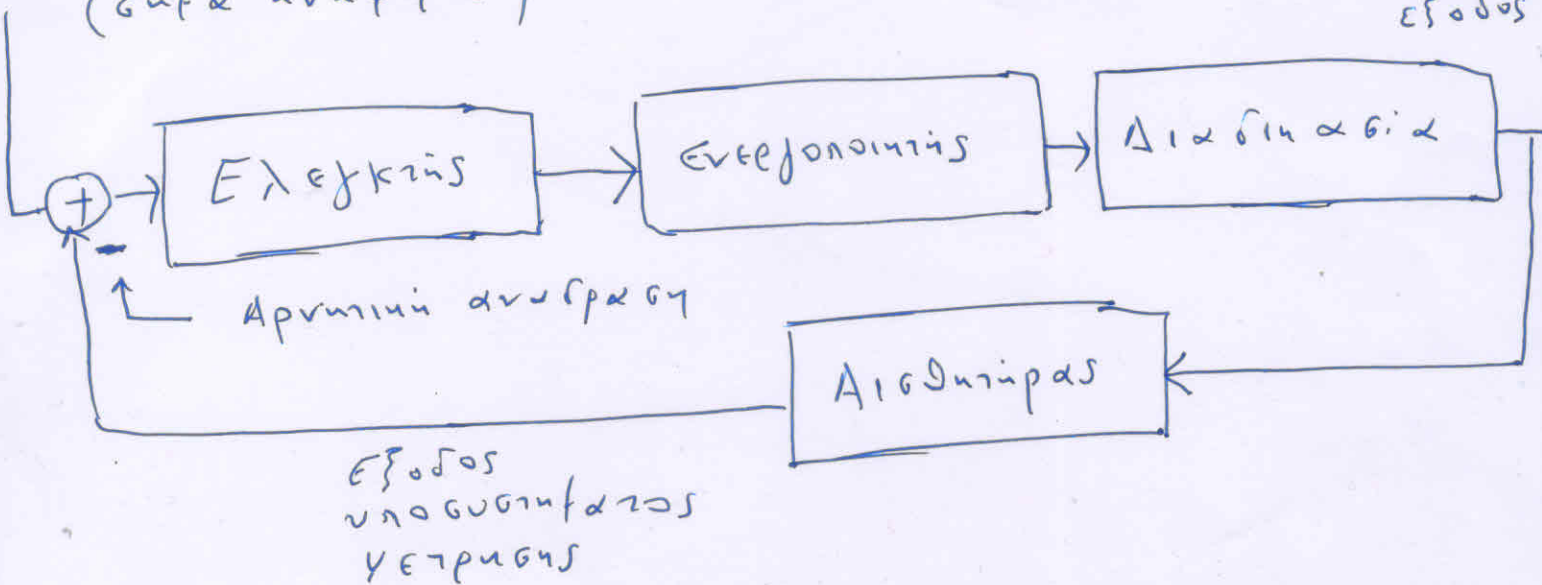 έξοδος
+
Ελεγκτής
Ενεργοποιητής
Διαδικασία
-
Αρνητική ανάδραση
Αισθητήρας
Εξοδος
υποσυστήματος
μετρησης